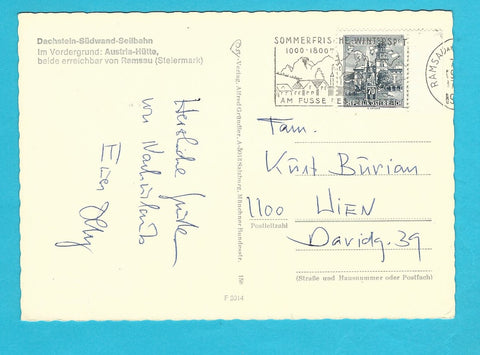 Dachstein-Südwand-Seilbahn
Im Vordergrund: Austria-Hütte,
beide erreichbar von Ramsau (Steiermark)
Herzliche Grüße
vom Nachurlaub
Euer
Verlag Alfred Gründler, A-5013 Salzburg, Münchner Bundesstr. 159
F 2014
SOMMERFRISCHE-WINTERSPORT
AM FUSSE
RAMSAU
REPUBLIK ÖSTERREICH
Fam.
Kurt Burian
1100 WIEN
Postleitzahl
Davidg. 39
(Straße und Hausnummer oder Postfach)